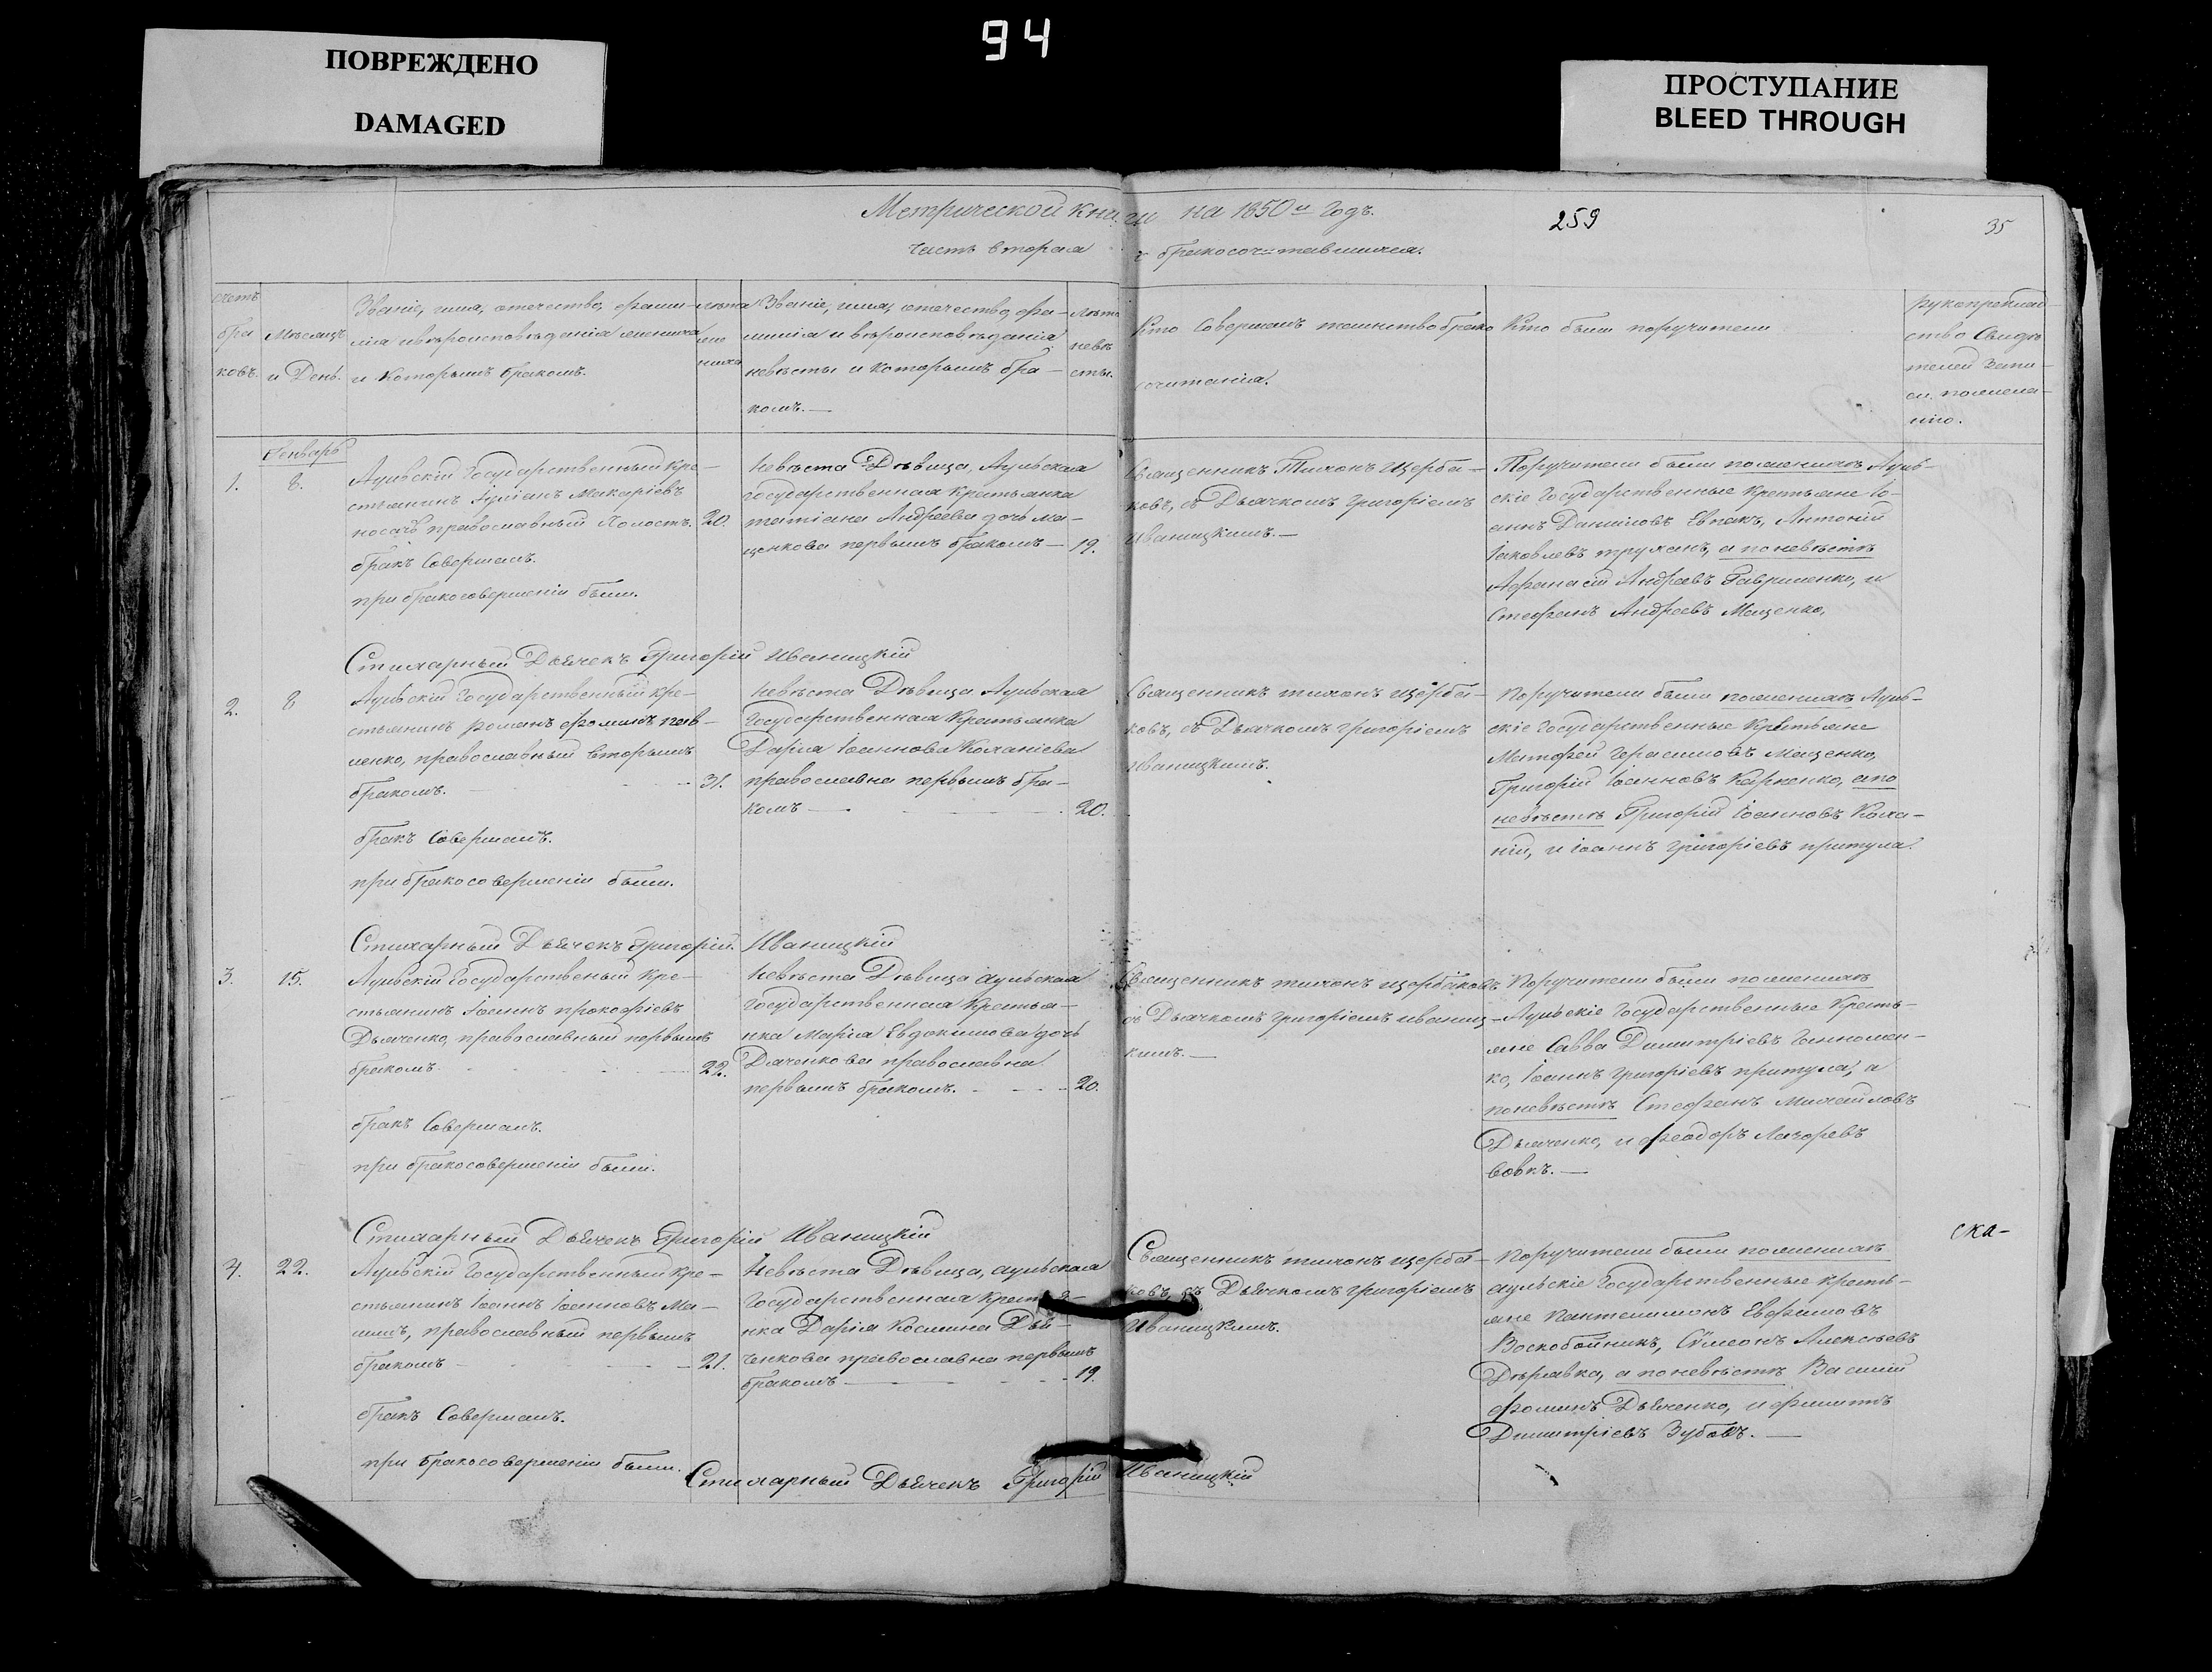 94
ПОВРЕЖДЕНО
DAMAGED
ПРОСТУПАНИЕ
BLEED THROUGH
Метрической книги на 1850й Годъ.
259
35
Часть вторая о бракосочетавшихся.
счетъ
бра
ковъ.
Мѣсяцъ
и День.
Званіе, имя, отечество, фами-
лія и вѣроисповѣданія жениха
и которымъ бракомъ.
лѣта
же
ниха
Званіе, имя, отечество, фа-
милія и вѣроисповѣданія
невѣсты и которымъ бра-
комъ.—
лѣта
невѣ
сты.
Кто совершалъ таинство брако
сочитанія.
Кто были поручители
рукоприклад
ство Свидѣ
телей запи-
си по желанію.
Генварь
1.
8.
Аульскій Государственный Кре-
стьянинъ Іуліанъ Макаріевъ
носачъ православный Холостъ.
20.
бракъ Совершалъ.
при бракосовершеніи были.
Невѣста Дѣвица, Аульская
государственная Крестьянка
татіана Андреева дочь ма-
ценкова первымъ бракомъ—
19.
Священникъ Тихонъ Щерба-
ковъ, съ Дьячкомъ Григоріемъ
Иваницкимъ.—
Поручители были по женихѣ Ауль-
скіе Государственные Крестьяне Іо-
аннъ Даниловъ Евпакъ, Антоній
Іаковлевъ труханъ, а по невѣстѣ
Афанасій Андреевъ Гавриленко, и
Стефанъ Андреевъ Маценко,
Стихарный Дьячекъ Григорій Иваницкій
2.
8
Аульскій Государственный Кре-
стьянинъ романъ фоминъ пав-
ленко, православный вторымъ
бракомъ.
31.
бракъ Совершалъ.
при бракосовершеніи были.
Невѣста Дѣвица Аульская
Государственная Крестьянка
Дарія Іоаннова Коханіева
православна первымъ бра-
комъ—
20.
Священникъ тихонъ щерба-
ковъ, съ Дьячкомъ григоріемъ
Иваницкимъ.
Поручители были по женихѣ Ауль-
скіе Государственные Крестьяне
Матфей Герасимовъ Маценко,
Григорій Іоанновъ Карпенко, а по
невѣстѣ Григорій Іоанновъ Коха-
ній, и іоаннъ григоріевъ притула.
Стихарный Дьячекъ Григорій Иваницкій
3.
15.
Аульскій Государственый Кре-
стьянинъ Іоаннъ прокофіевъ
Дьяченко, православный первымъ
бракомъ
22.
бракъ Совершалъ.
при бракосовершеніи были.
Невѣста Дѣвица аульская
Государственная Крестья-
нка Марія Евдокимова дочь
Дяченкова православна
первымъ бракомъ.
20.
Священникъ тихонъ щербаковъ
съ Дьячкомъ Григоріемъ иваниц-
кимъ.—
Поручители были по женихѣ
Аульскіе Государственные Кресть-
яне Савва Димитріевъ
ко, Іоаннъ григоріевъ притула, а
по невѣстѣ Стефанъ Михайловъ
Дьяченко, и феодоръ Лазоревъ
вовкъ.—
Стихарный Дьячекъ Григорій Иваницкій
ска-
4.
22.
Аульскій Государственный Кре-
стьянинъ Іоаннъ Іоанновъ Ма-
шинъ, православный первымъ
бракомъ
21.
бракъ Совершалъ.
при бракосовершеніи были.
Невѣста Дѣвица, аульская
Государственная Крестья-
нка Дарія Космина Дья-
ченкова православна первымъ
бракомъ—
19.
Священникъ тихонъ щерба-
ковъ, съ Дьячкомъ григоріемъ
Иваницкимъ.
Поручители были по женихѣ
аульскіе Государственные кресть-
яне Пантелимонъ Евфимовъ
Воскобойникъ, Сѵмеонъ Алексѣевъ
Державка, а по невѣстѣ Василій
фоминъ Дьяченко, и филиппъ
Димитріевъ Зубовъ.—
Стихарный Дьячекъ Григорій Иваницкій